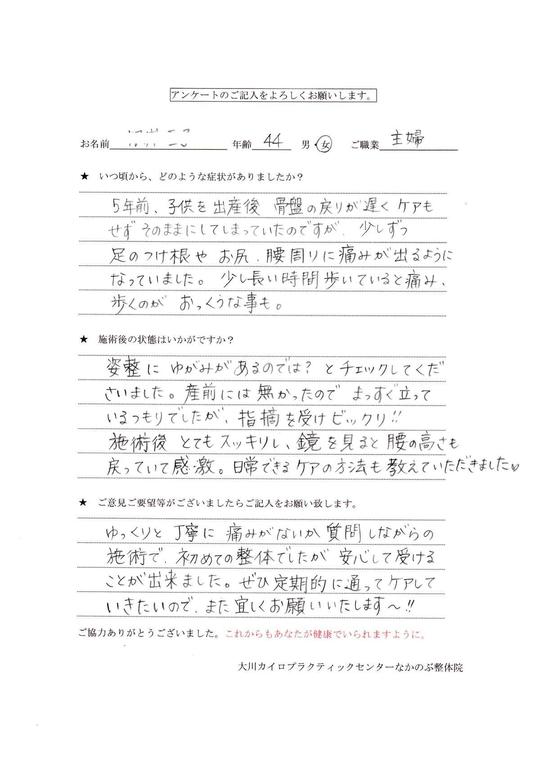 アンケートのご記入をよろしくお願いします。
お名前 年齢 44 男・女 ご職業 主婦
★ いつ頃から、どのような症状がありましたか？
5年前、子供を出産後 骨盤の戻りが遅く ケアも
せず そのままにしてしまっていたのですが、少しずつ
足のつけ根や お尻、腰周りに痛みが出るように
なっていました。少し長い時間歩いていると痛み、
歩くのが おっくうな事も。
★ 施術後の状態はいかがですか？
姿整に ゆがみがあるのでは？とチェックしてくだ
さいました。産前には無かったので まっすぐ立って
いるつもりでしたが、指摘を受けビックリ!!
施術後 とてもスッキリし、鏡を見ると腰の高さも
戻っていて感激。日常できるケアの方法も教えていただきました♡
★ ご意見ご要望等がございましたらご記入をお願い致します。
ゆっくりと丁寧に 痛みがないか 質問しながらの
施術で、初めての整体でしたが 安心して受ける
ことが出来ました。ぜひ定期的に通ってケアして
いきたいので、また宜しくお願いいたします〜!!
ご協力ありがとうございました。これからもあなたが健康でいられますように。
大川カイロプラクティックセンターなかのぶ整体院